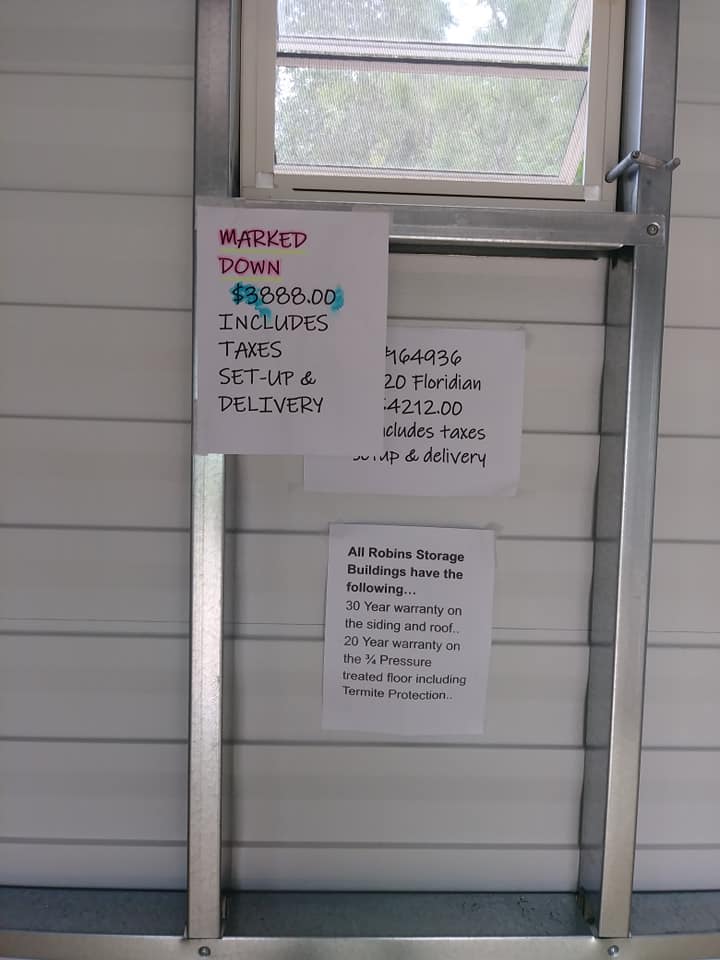 MARKED
DOWN
$3888.00
INCLUDES
TAXES
SET-UP &
DELIVERY
164936
20 Floridian
4212.00
cludes taxes
up & delivery
All Robins Storage
Buildings have the
following...
30 Year warranty on
the siding and roof..
20 Year warranty on
the ¾ Pressure
treated floor including
Termite Protection..